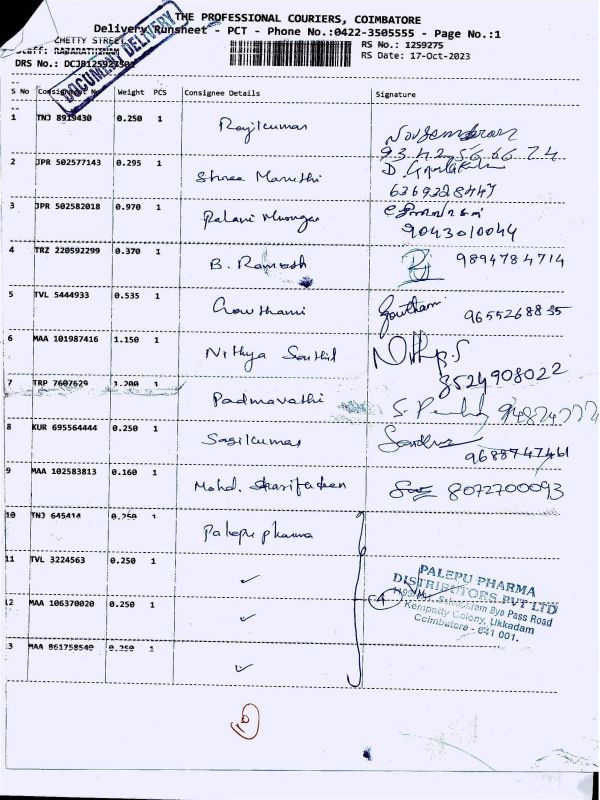 THE PROFESSIONAL COURIERS, COIMBATORE
Delivery Runsheet - PCT - Phone No.:0422-3505555 - Page No.:1
CHETTY STREET
RS No.: 1259275
Staff: RABARATHINAM
RS Date: 17-Oct-2023
DRS No.:
DOCUMENT DELIVERY
S No Consignment No Weight PCS Consignee Details Signature
1 TNJ 8919430 0.250 1 Rajkumar
2 JPR 502577143 0.295 1 Shree Maruthi
6369328447
3 JPR 502582018 0.970 1 Palani Murugan
9043010044
4 TRZ 220592299 0.370 1 B. Ramesh 9894784714
5 TVL 5444933 0.535 1 Gowthami Goutham 9655268835
6 MAA 101987416 1.150 1 Nithya Senthil Nithya.S
8524908022
7 TRP 7607629 1.200 1 Padmavathi
8 KUR 695564444 0.250 1 Sasikumar
9688747461
9 MAA 102583813 0.160 1 Mohd. Sharifudeen 8072700093
10 TNJ 645414 0.250 1 Palepu pharma
11 TVL 3224563 0.250 1 ✓
12 MAA 106370020 0.250 1 ✓
13 MAA 861758549 0.250 1 ✓
4
PALEPU PHARMA
DISTRIBUTORS PVT LTD
Bye Pass Road
Kempatty Colony, Ukkadam
Coimbatore - 641 001.
10